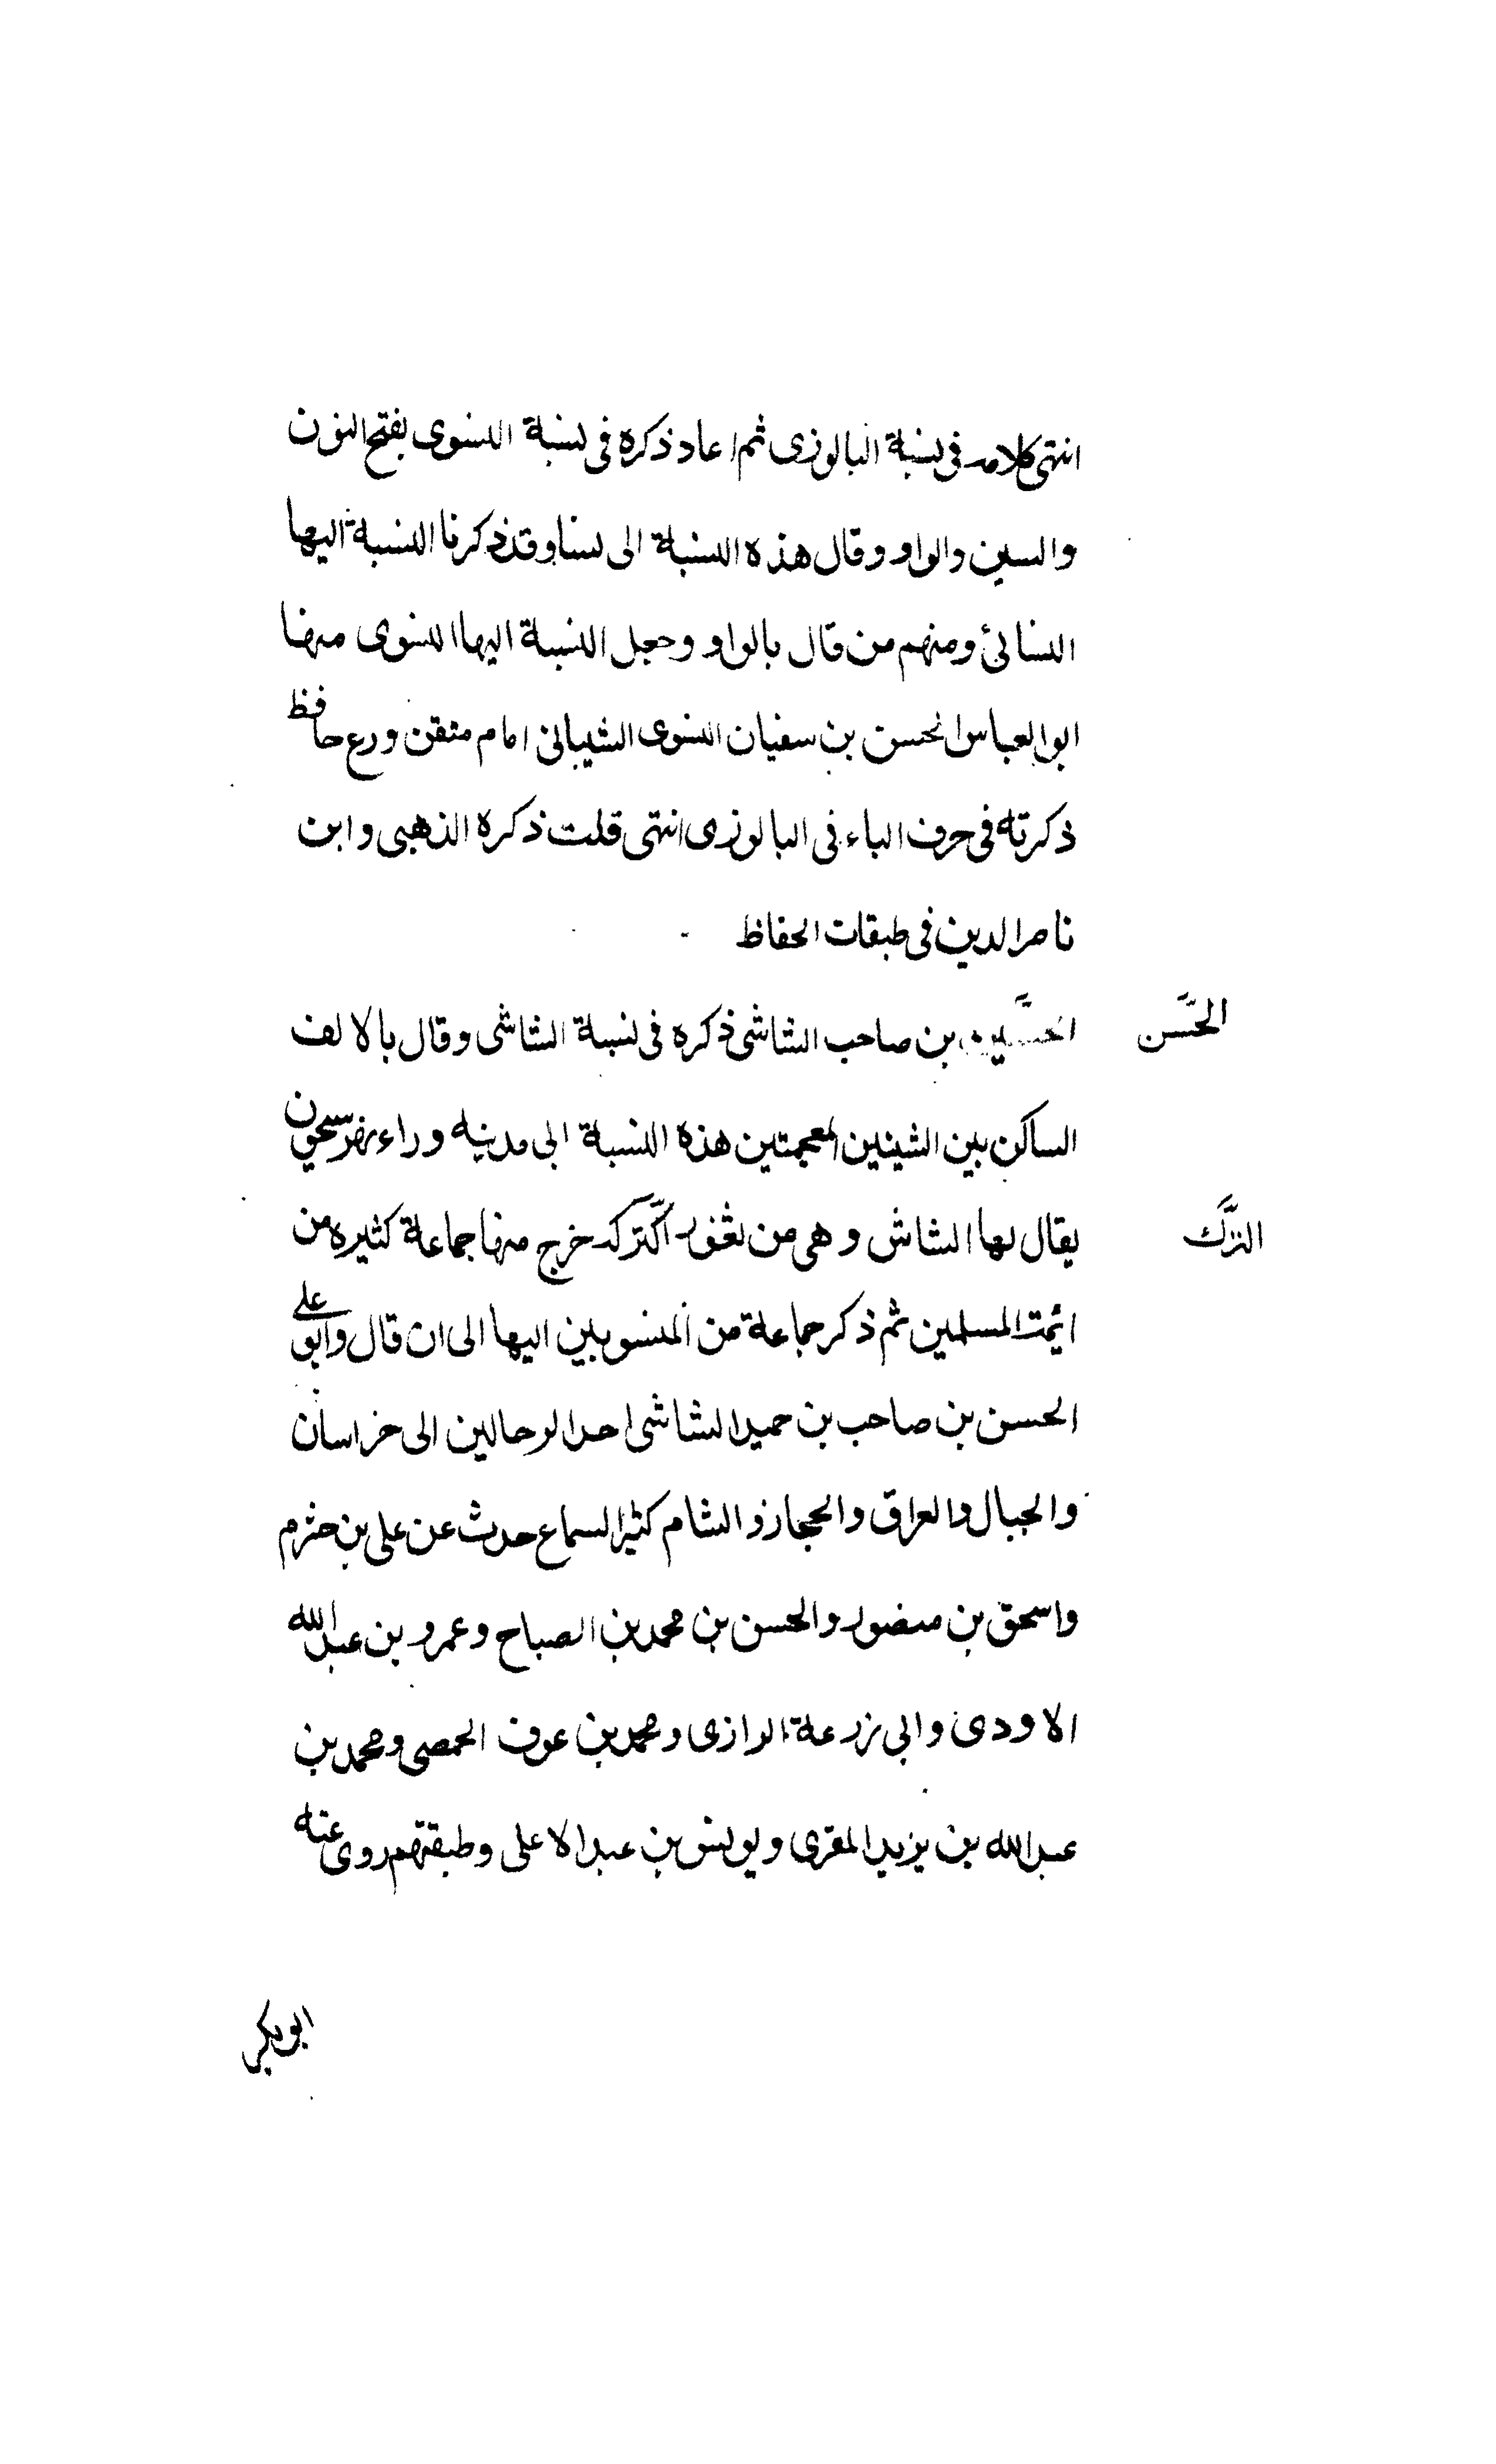 انتهى كلامه فى نسبة البالوزى ثم اعاد ذكره فى نسبة النسوى بفتح النون
والسين والواو وقال هذه النسبة الى نسا وقد ذكرنا النسبة اليها
النسائى ومنهم من قال بالواو وجعل النسبة اليها النسوى منها
ابو العباس الحسن بن سفيان النسوى الشيبانى امام متقن ورع حافظ
ذكرته فى حرف الباء فى البالوزى انتهى قلت ذكره الذهبى وابن
ناصر الدين فى طبقات الحفاظ
الحسين بن صاحب الشاشى ذكره فى نسبة الشاشى وقال بالالف
الحسن
الساكن بين الشينين المعجمتين هذه النسبة الى مدينة وراء نهر سيحون
يقال لها الشاش وهى من ثغور خرج منها جماعة كثيرة من
الترك
ائمة المسلمين ثم ذكر جماعة من المنسوبين اليها الى ان قال وابو على
الحسن بن صاحب بن حميد الشاشى احد الرحالين الى خراسان
والجبال والعراق والحجاز والشام كثير السماع حدث عن على بن خشرم
واسحق بن منصور والحسن بن محمد بن الصباح وعمرو بن عبد الله
الاودى وابى زرعة الرازى ومحمد بن عوف الحمصى ومحمد بن
عبد الله بن يزيد المقرى ويونس بن عبد الاعلى وطبقتهم روى عنه
ابو بكر